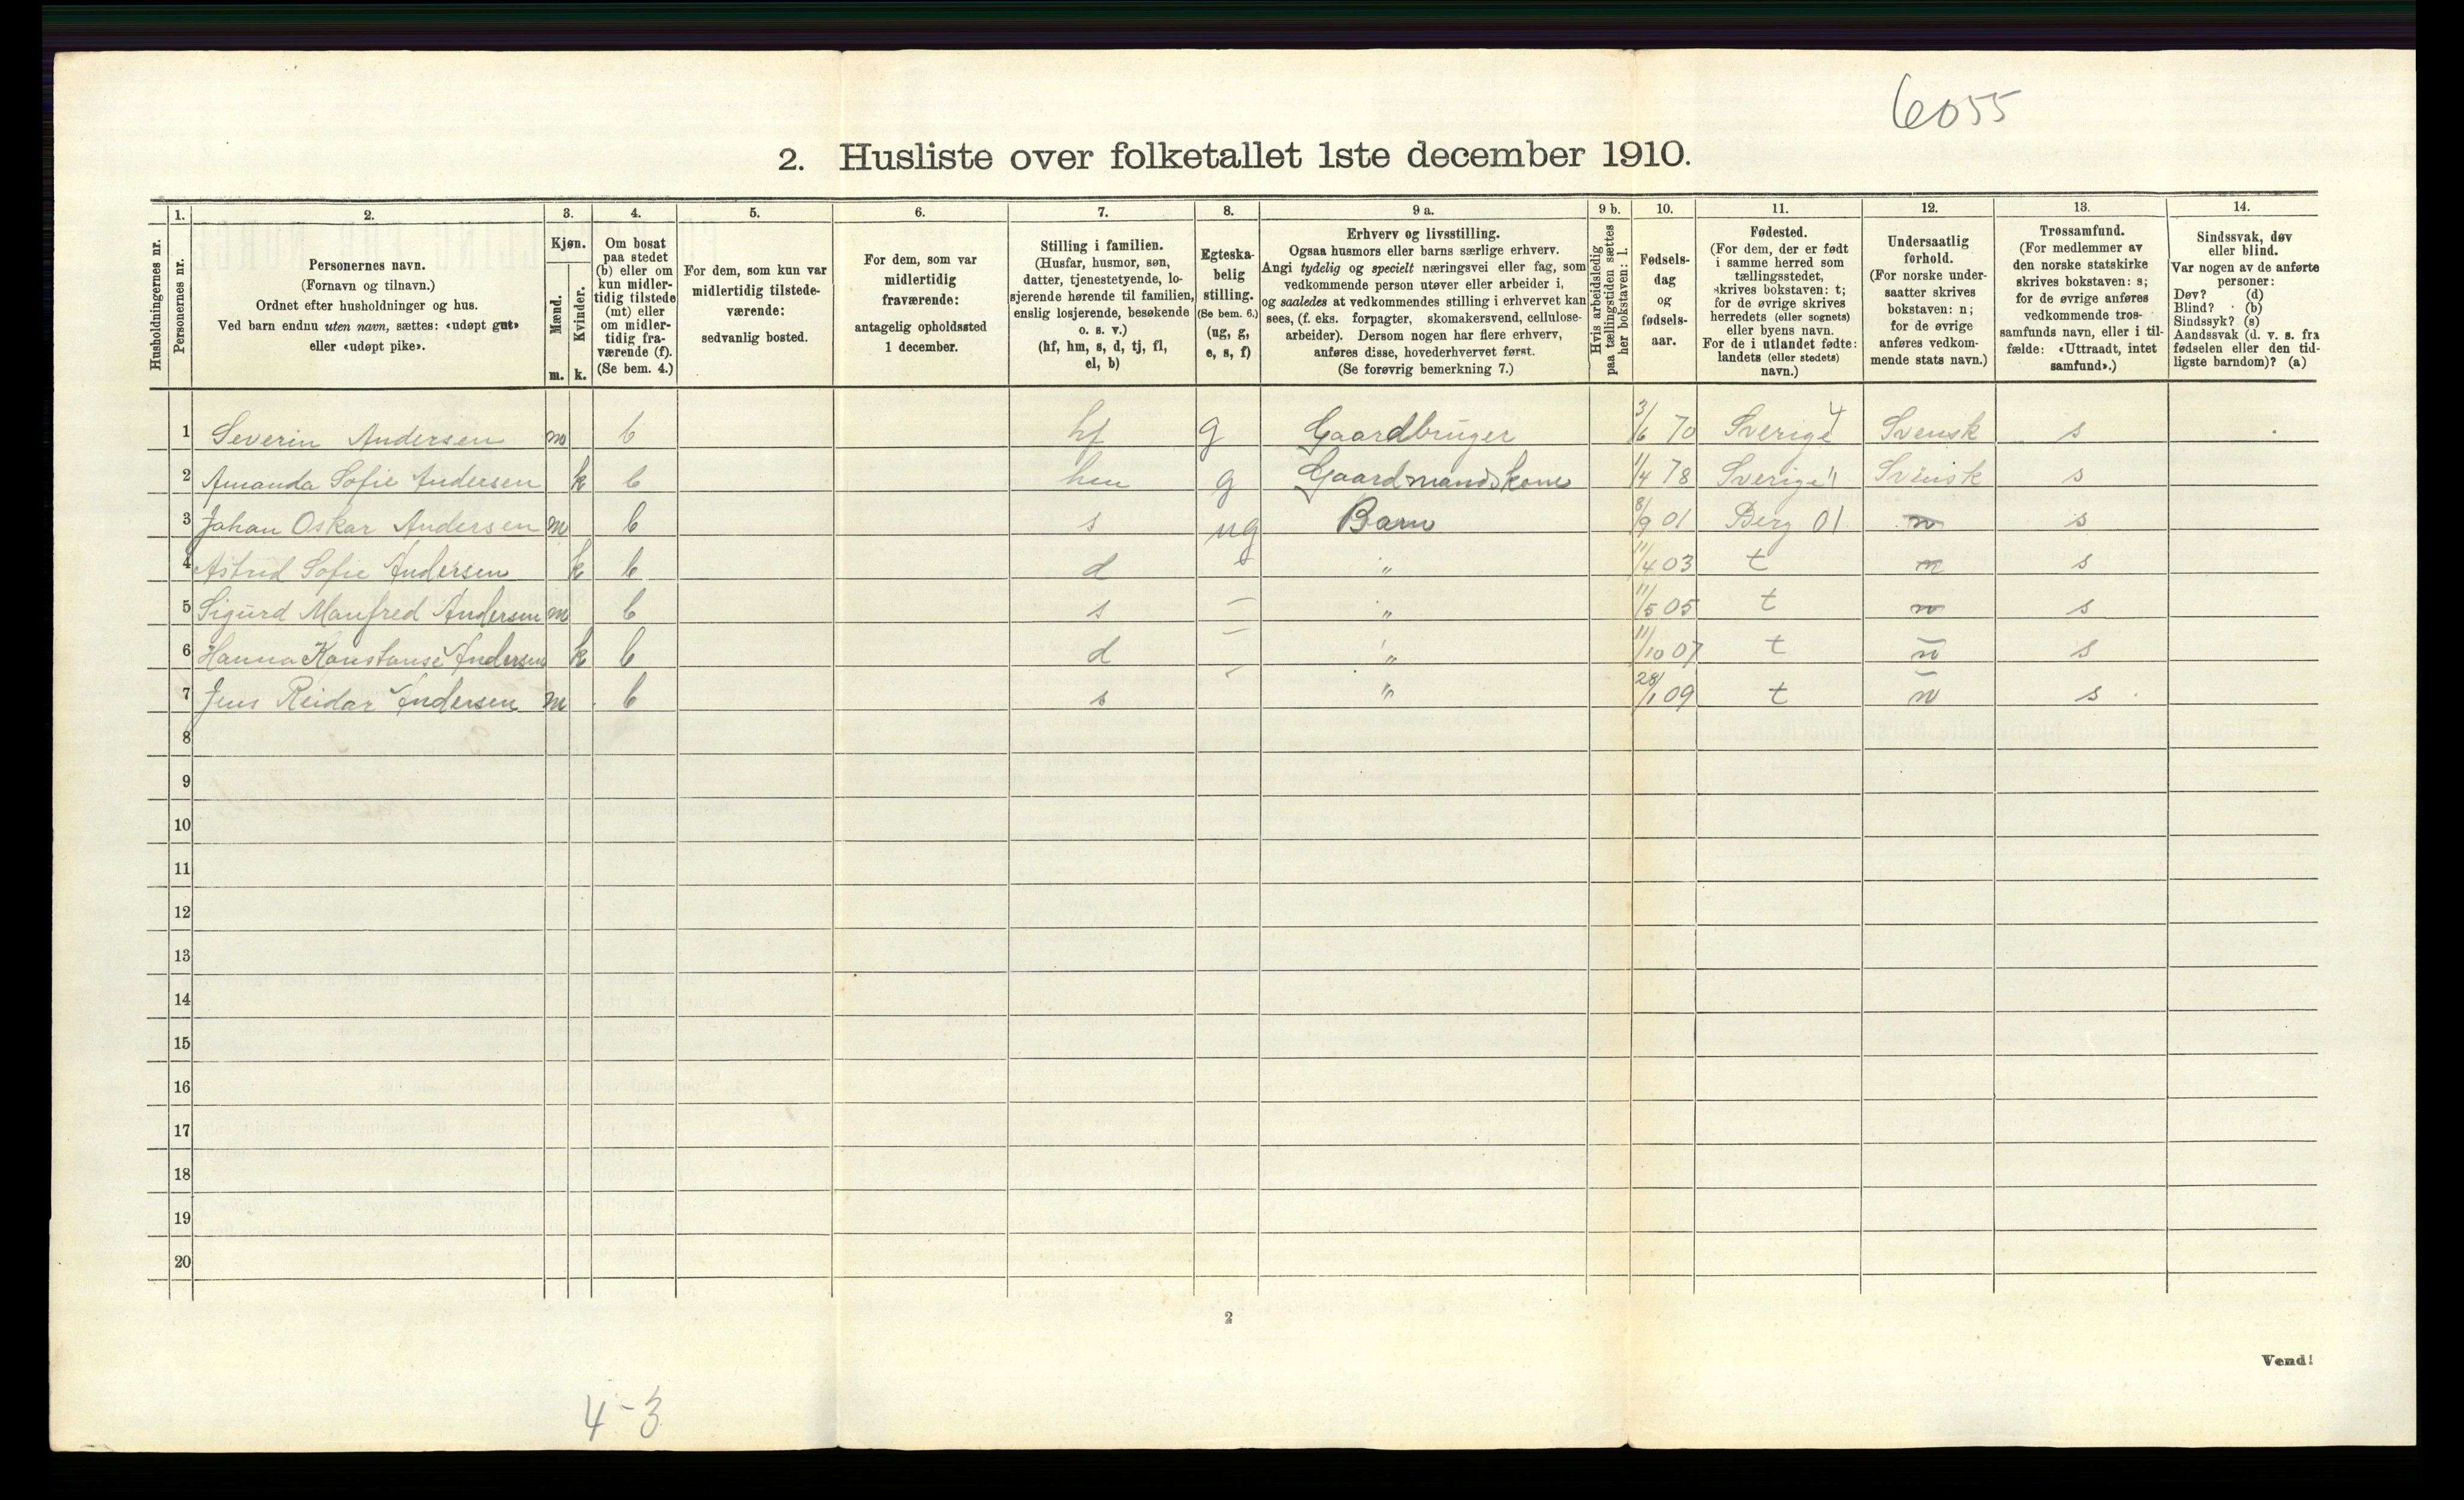 6055
2. Husliste over folketallet 1ste december 1910.
Husholdningernes nr.
1. Personernes nr.
2. Personernes navn. (Fornavn og tilnavn.) Ordnet efter husholdninger og hus. Ved barn endnu uten navn, sættes: «udøpt gut» eller «udøpt pike».
3. Kjøn. Mænd. m. Kvinder. k.
4. Om bosat paa stedet (b) eller om kun midler-tidig tilstede (mt) eller om midler-tidig fra-værende (f). (Se bem. 4.)
5. For dem, som kun var midlertidig tilstede-værende: sedvanlig bosted.
6. For dem, som var midlertidig fraværende: antagelig opholdssted 1 december.
7. Stilling i familien. (Husfar, husmor, søn, datter, tjenestetyende, lo-sjerende hørende til familien, enslig losjerende, besøkende o. s. v.) (hf, hm, s, d, tj, fl, el, b)
8. Egteska-belig stilling. (Se bem. 6.) (ug, g, e, s, f)
9 a. Erhverv og livsstilling. Ogsaa husmors eller barns særlige erhverv. Angi tydelig og specielt næringsvei eller fag, som vedkommende person utøver eller arbeider i, og saaledes at vedkommendes stilling i erhvervet kan sees, (f. eks. forpagter, skomakersvend, cellulose-arbeider). Dersom nogen har flere erhverv, anføres disse, hovederhvervet først. (Se forøvrig bemerkning 7.)
9 b. Hvis arbeidsledig paa tællingstiden sættes her bokstaven: l.
10. Fødsels-dag og fødsels-aar.
11. Fødested. (For dem, der er født i samme herred som tællingsstedet, skrives bokstaven: t; for de øvrige skrives herredets (eller sognets) eller byens navn. For de i utlandet fødte: landets (eller stedets) navn.)
12. Undersaatlig forhold. (For norske under-saatter skrives bokstaven: n; for de øvrige anføres vedkom-mende stats navn.)
13. Trossamfund. (For medlemmer av den norske statskirke skrives bokstaven: s; for de øvrige anføres vedkommende tros-samfunds navn, eller i til-fælde: «Uttraadt, intet samfund».)
14. Sindssvak, døv eller blind. Var nogen av de anførte personer: Døv? (d) Blind? (b) Sindssyk? (s) Aandssvak (d. v. s. fra fødselen eller den tid-ligste barndom)? (a)
1 Severin Andersen m b hf g Gaardbruger 3/6 70 Sverige 4 Svensk s
2 Amanda Sofie Andersen k b hm g Gaardmandskone 1/4 78 Sverige " Svensk s
3 Johan Oskar Andersen m b s ug Barn 8/9 01 Berg 01 n s
4 Astrid Sofie Andersen k b d " 11/4 03 t n s
5 Sigurd Manfred Andersen m b s — " 11/5 05 t n s
6 Hanna Konstanse Andersen k b d — " 11/10 07 t n s
7 Jens Reidar Andersen m b s — " 28/1 09 t n s
8
9
10
11
12
13
14
15
16
17
18
19
20
2
Vend!
4-3